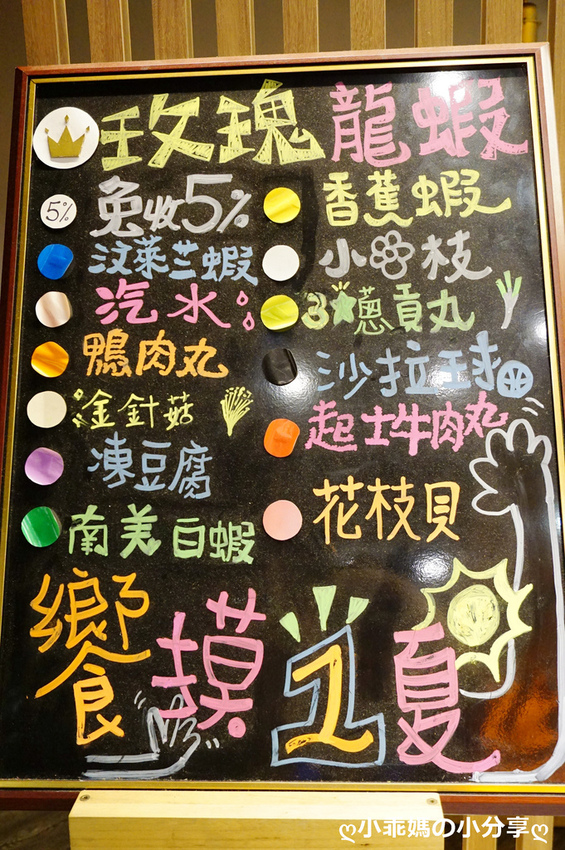 玫瑰龍蝦
5%
免收5%
汶萊芒蝦
汽水
鴨肉丸
金針菇
凍豆腐
南美白蝦
香蕉蝦
小枝
3蔥貢丸
沙拉球
起士牛肉丸
花枝貝
饗摸1夏
ღ小乖媽の小分享ღ